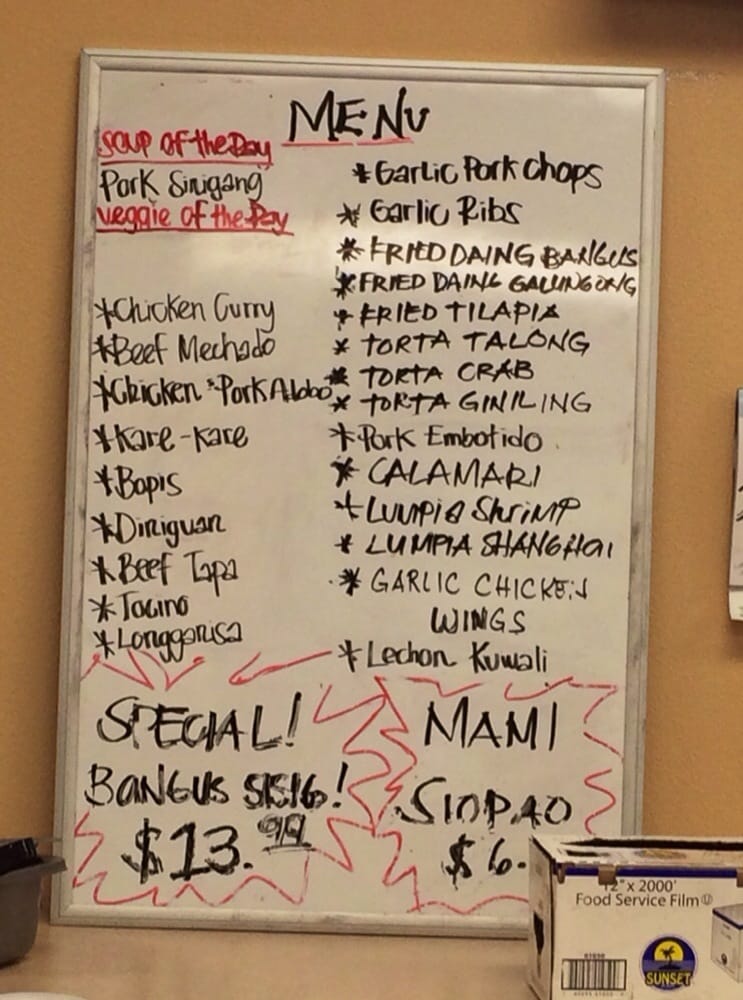 MENU
Soup of the Day
Pork Sinigang
Veggie of the Day
*Chicken Curry
*Beef Mechado
*Chicken *Pork Adobo
*Kare-Kare
*Bopis
*Diniguan
*Beef Tapa
*Tocino
*Longganisa
*Garlic Pork Chops
*Garlic Ribs
*FRIED DAING BANGUS
*FRIED DAING GALUNGONG
*FRIED TILAPIA
*TORTA TALONG
*TORTA CRAB
*TORTA GINILING
*Pork Embotido
*CALAMARI
*Lumpia Shrimp
*LUMPIA SHANGHAI
*GARLIC CHICKEN
WINGS
*Lechon Kuwali
SPECIAL!
BANGUS SISIG!
$13.99
MAMI
SIOPAO
$6.
12" x 2000'
Food Service Film
SUNSET